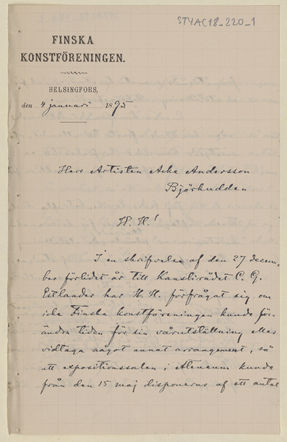 STYAC18_220_1
FINSKA
KONSTFÖRENINGEN.
HELSINGFORS,
den 4 januari 1895
Herr Artisten Acke Andersson
Björkudden
H. H.!
I en skrifvelse af den 27 decem-
ber förlidet år till Kanslirådet C. G.
Estlander har H. H. förfrågat sig om
icke Finska konstföreningen kunde för-
ändra tiden för sin vårutställning eller
vidtaga något annat arrangement, så
att expositionssalen i Ateneum kunde
från den 15 maj disponeras af ett antal